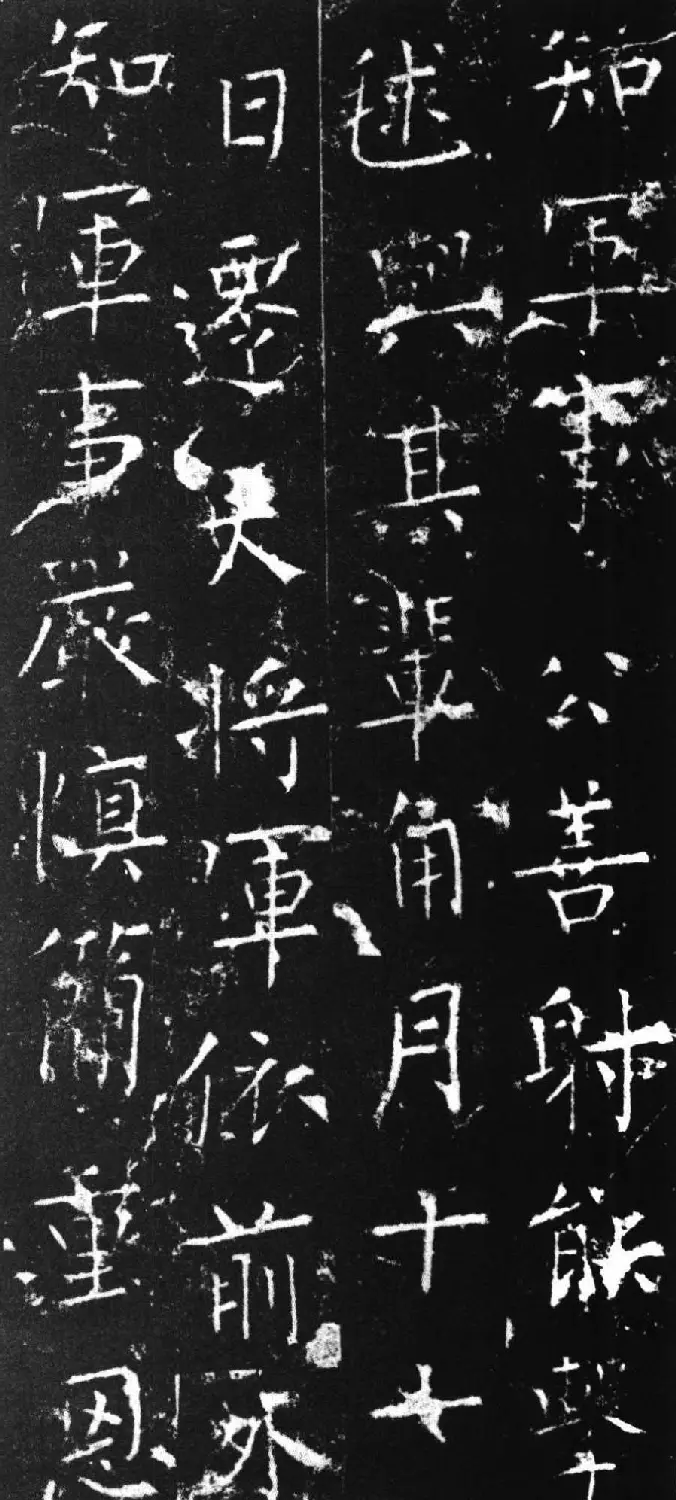 知軍事公善射能擊
毬與其輩角月十
日遷大將軍依前
知軍事嚴慎簡重恩